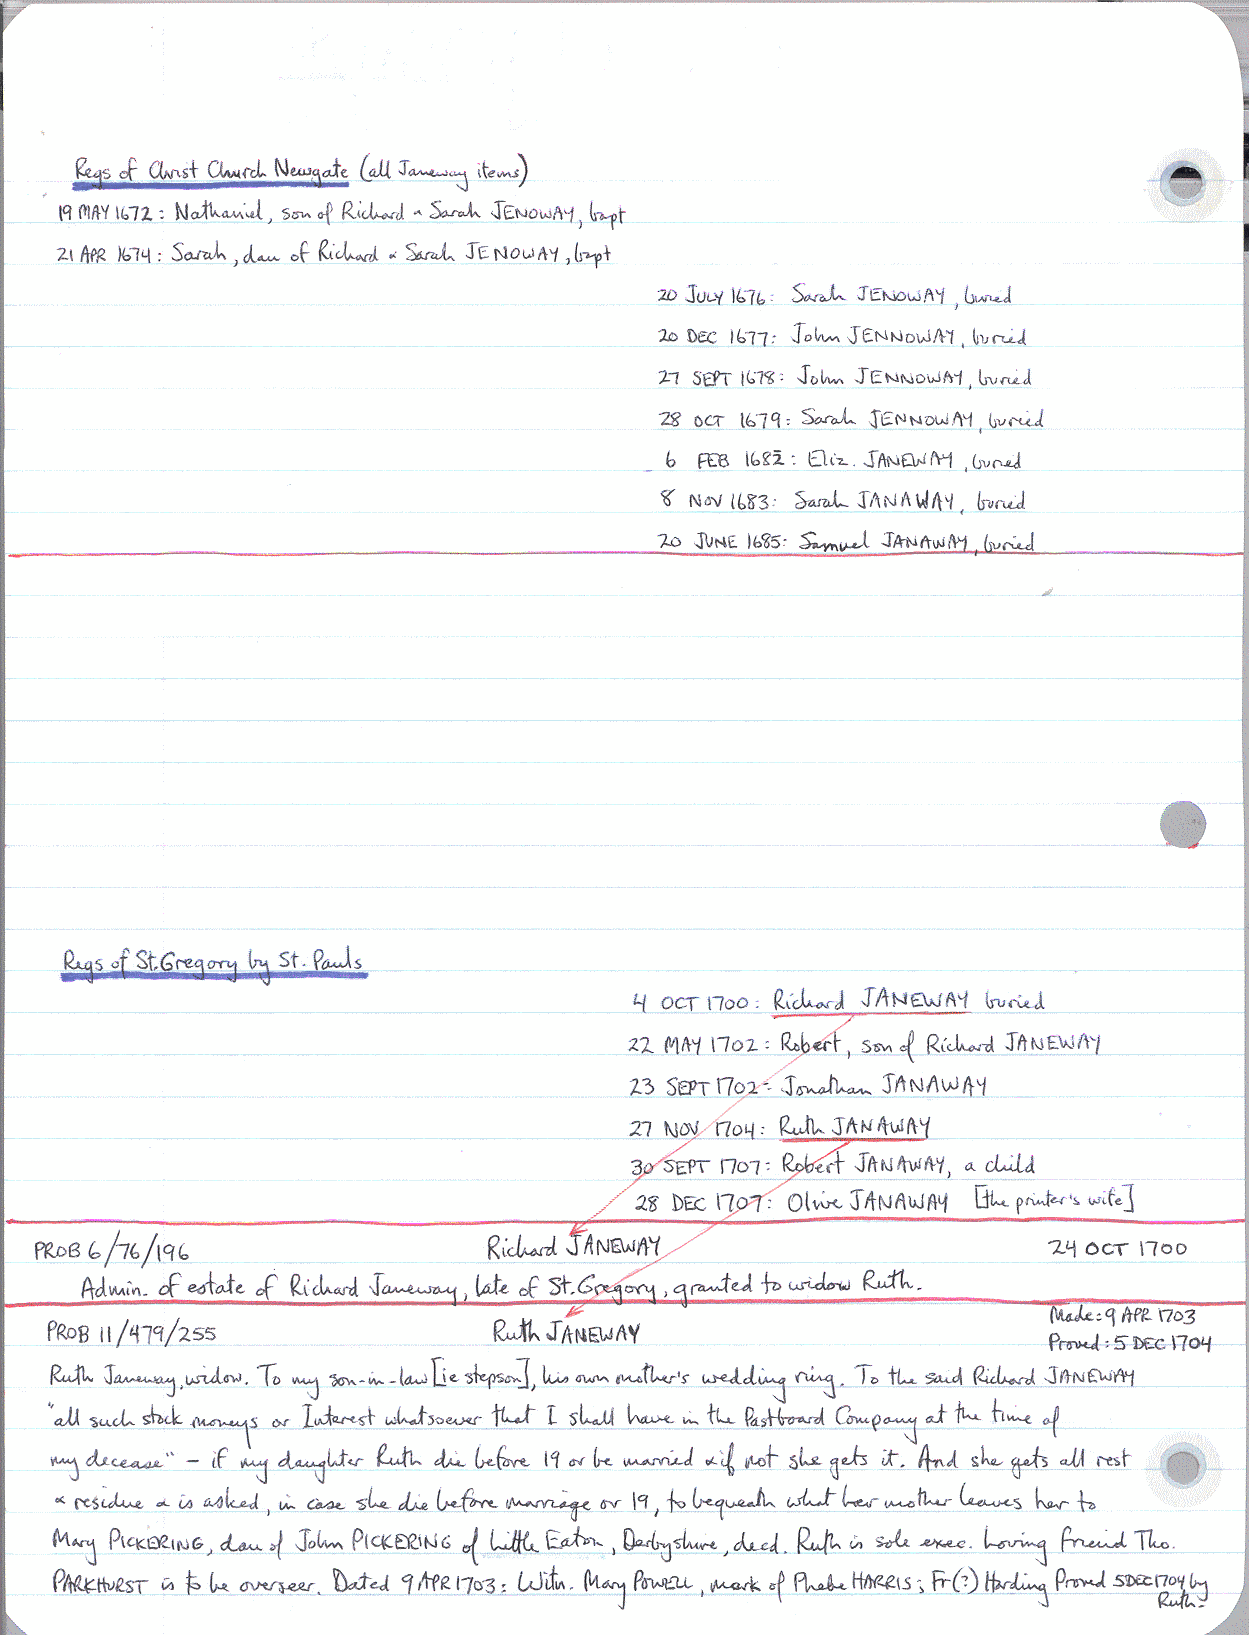 Regs of Christ Church Newgate (all Janeway items)
19 MAY 1672: Nathaniel, son of Richard & Sarah JENOWAY, bapt
21 APR 1674: Sarah, dau of Richard & Sarah JENOWAY, bapt
20 JULY 1676: Sarah JENOWAY, buried
20 DEC 1677: John JENNOWAY, buried
27 SEPT 1678: John JENNOWAY, buried
28 OCT 1679: Sarah JENNOWAY, buried
6 FEB 1682: Eliz. JANEWAY, buried
8 NOV 1683: Sarah JANAWAY, buried
20 JUNE 1685: Samuel JANAWAY, buried
Regs of St. Gregory by St. Pauls
4 OCT 1700: Richard JANEWAY buried
22 MAY 1702: Robert, son of Richard JANEWAY
23 SEPT 1702: Jonathan JANAWAY
27 NOV 1704: Ruth JANAWAY
30 SEPT 1707: Robert JANAWAY, a child
28 DEC 1707: Olive JANAWAY [the printer's wife]
PROB 6/76/196 Richard JANEWAY 24 OCT 1700
Admin. of estate of Richard Janeway, late of St. Gregory, granted to widow Ruth.
PROB 11/479/255 Ruth JANEWAY Made: 9 APR 1703
Proved: 5 DEC 1704
Ruth Janeway, widow. To my son-in-law [ie stepson], his own mother's wedding ring. To the said Richard JANEWAY
"all such stock moneys or Interest whatsoever that I shall have in the Pastboard Company at the time of
my decease" – if my daughter Ruth die before 19 or be married & if not she gets it. And she gets all rest
& residue & is asked, in case she die before marriage or 19, to bequeath what her mother leaves her to
Mary PICKERING, dau of John PICKERING of Little Eaton, Derbyshire, decd. Ruth is sole exec. Loving friend Tho.
PARKHURST is to be overseer. Dated 9 APR 1703: Witn. Mary POWELL, mark of Phebe HARRIS; Fr(?) Harding Proved 5 DEC 1704 by
Ruth.